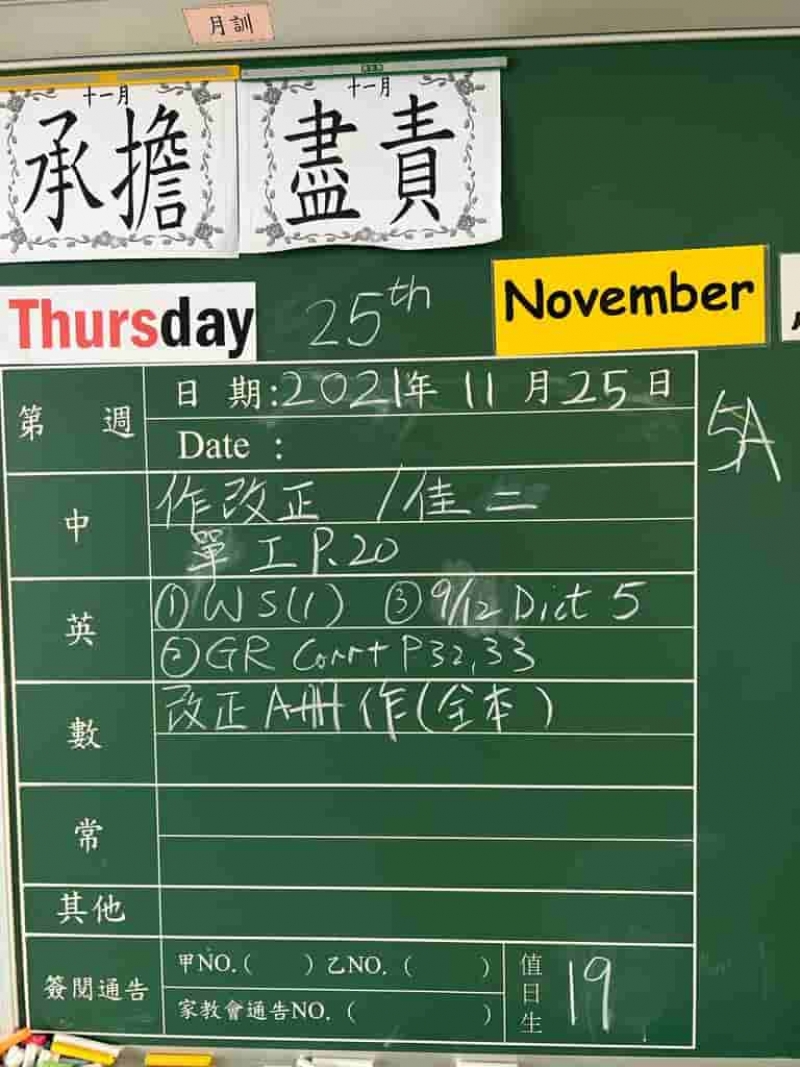 月訓
十一月
承擔
十一月
盡責
Thursday 25th November
5A
第 週
日期:2021年11月25日
Date :
中
作改正 /佳二
單工P.20
英
①WS(1) ③9/12 Dict 5
②GR Corr+ P32,33
數
改正A冊作(全本)
常
其他
簽閱通告
甲NO.( ) 乙NO. ( )
家教會通告NO. ( )
值日生 19